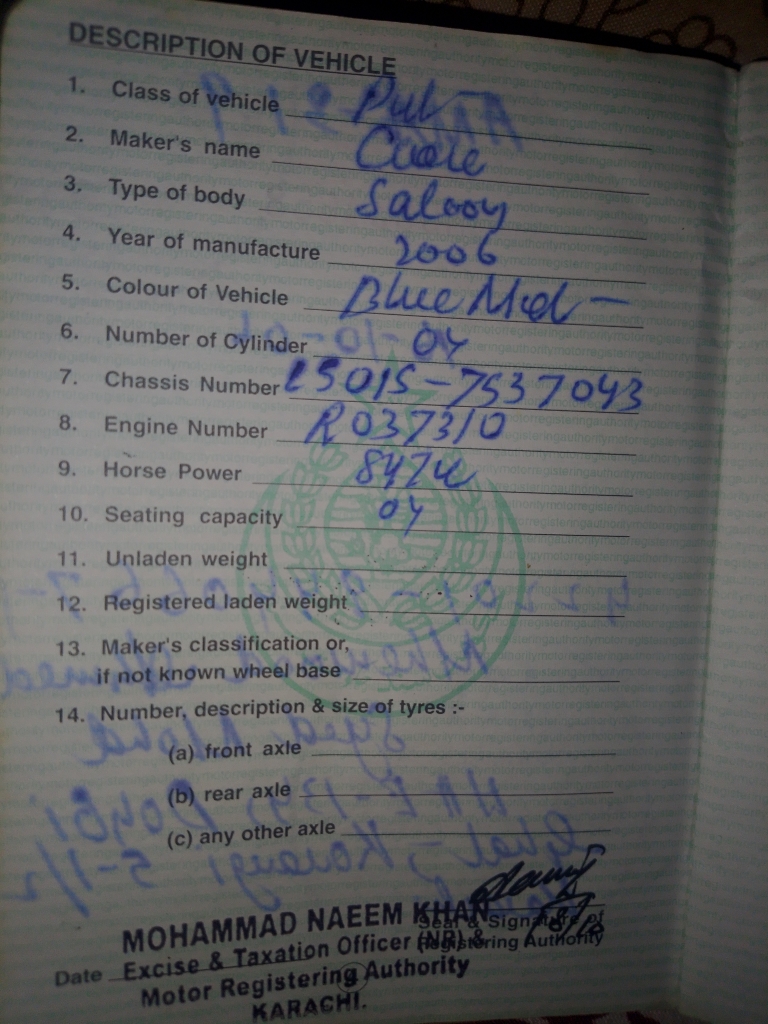 DESCRIPTION OF VEHICLE
1. Class of vehicle Pvt
2. Maker's name Cuore
3. Type of body Saloon
4. Year of manufacture 2006
5. Colour of Vehicle Blue Met
6. Number of Cylinder 04
7. Chassis Number L501S-7537043
8. Engine Number R037310
9. Horse Power 847cc
10. Seating capacity 04
11. Unladen weight
12. Registered laden weight
13. Maker's classification or,
if not known wheel base
14. Number, description & size of tyres :-
(a) front axle
(b) rear axle
(c) any other axle
Seal & Signature of
Registering Authority
MOHAMMAD NAEEM KHAN
Date Excise & Taxation Officer (NR) &
Motor Registering Authority
KARACHI.